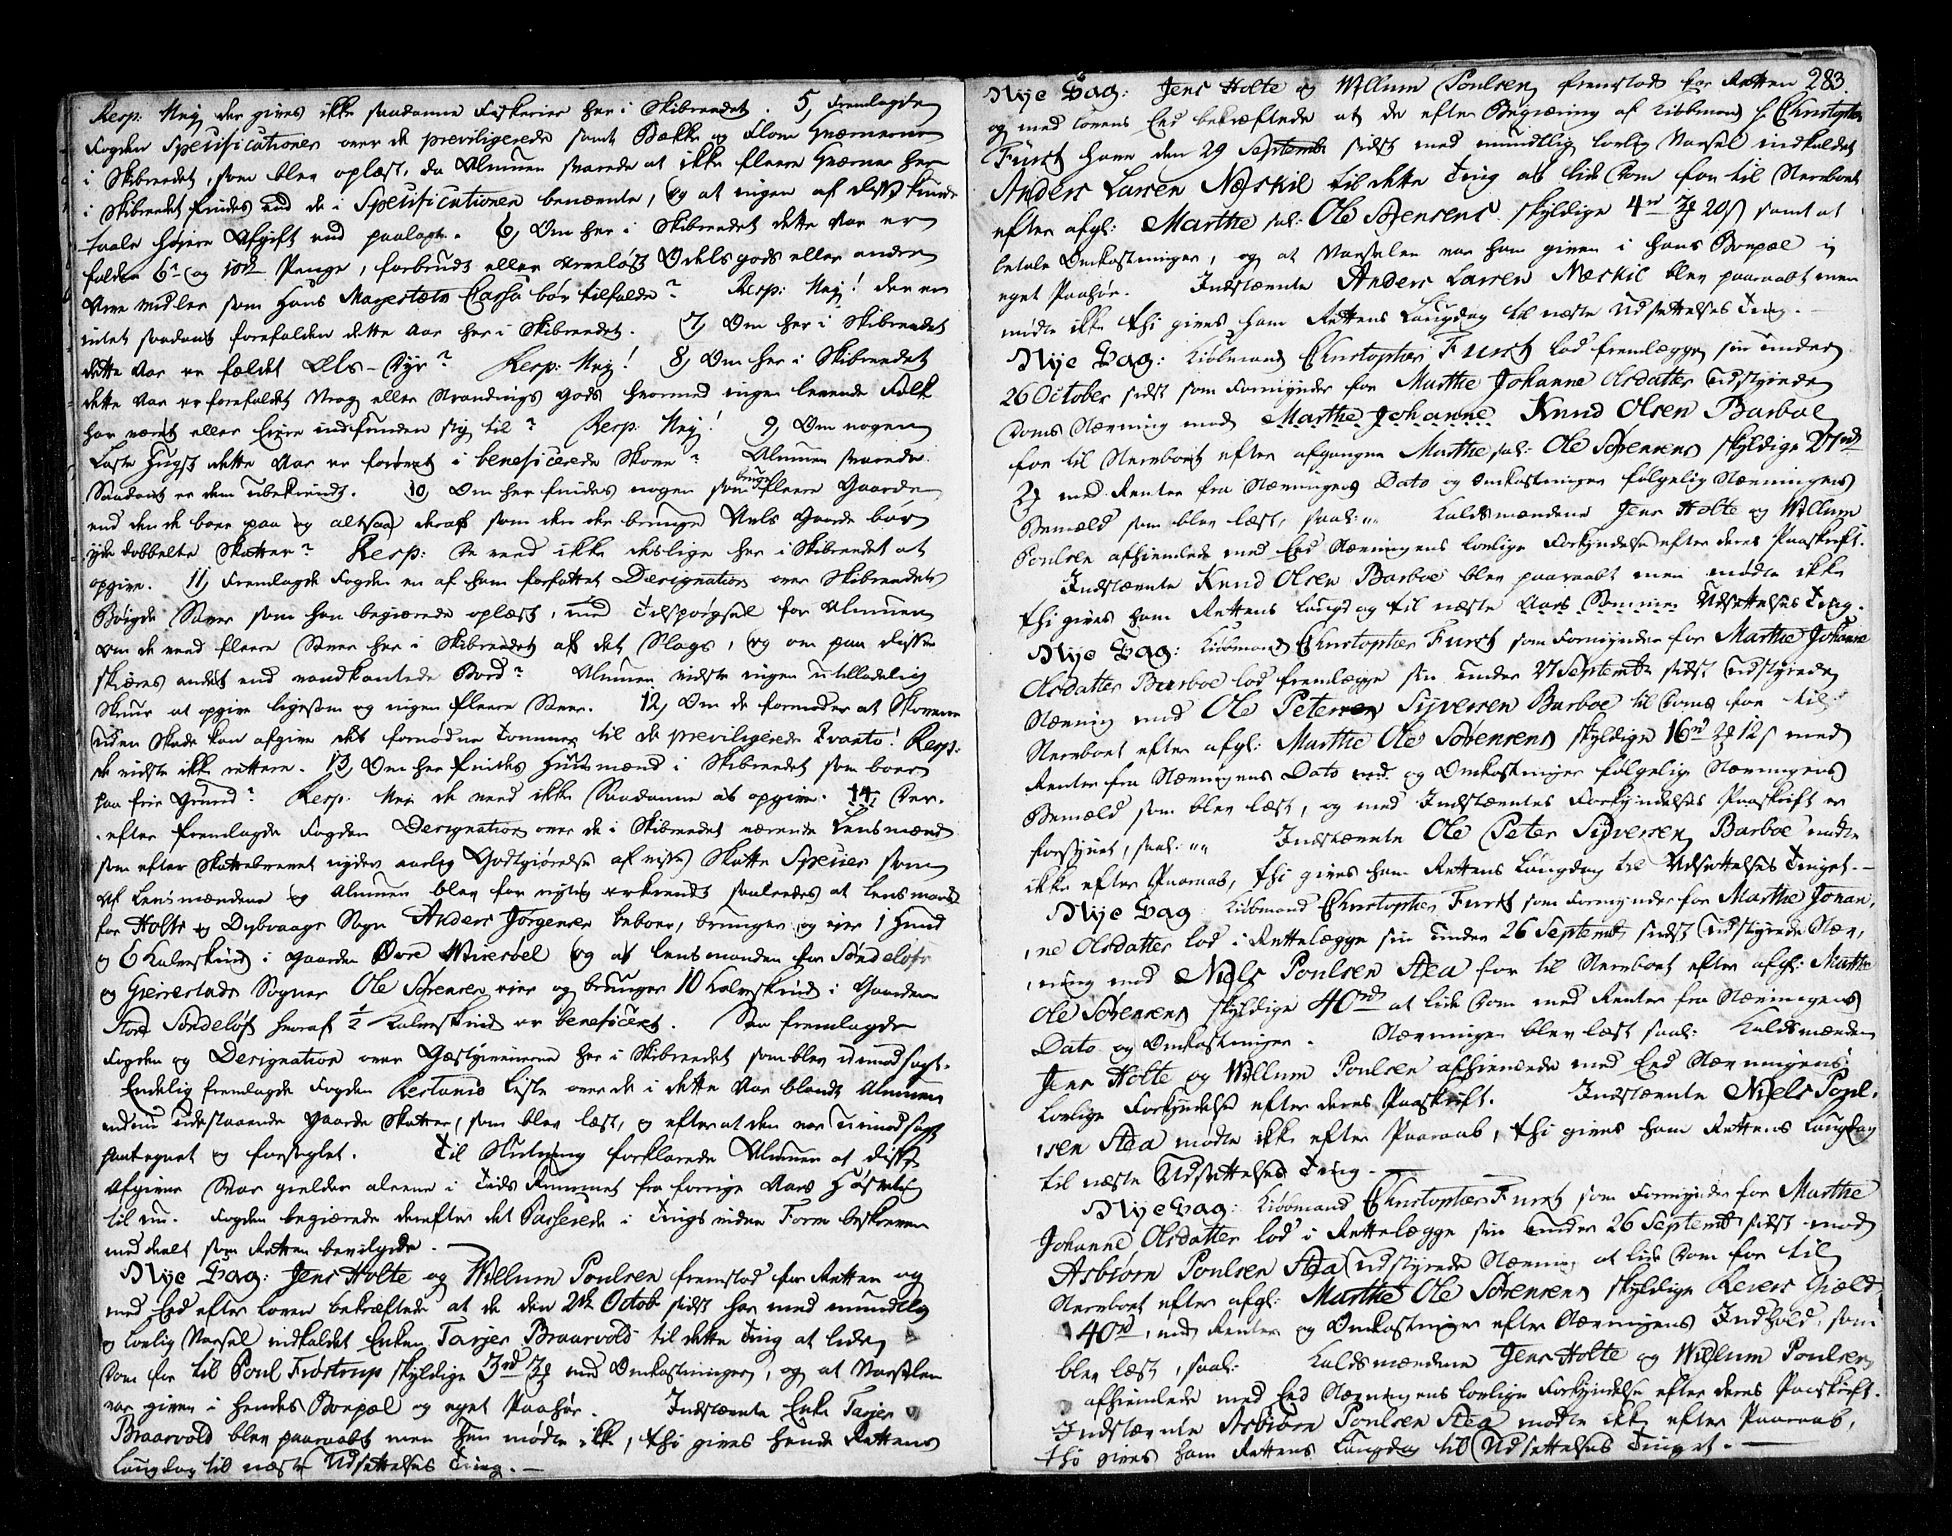 Resp: Nej der gives ikke saadanne Fiskerier her i Skibreedet. 5, Fremlagde
Fogden Specificationer over de previligerede samt Bække og Flom Qværnerne
i Skibreedet, som blev oplæst, da Almuen svarede at ikke fleere Qværner her
i Skibreedet findes end de i Specificationen benævnte, og at ingen af disse kunde
taale højere Afgift end paalagt. 6, Om her i Skibreedet dette Aar er
falden 6te og 10de Penge, forbrudt eller arveløst Odelsgods eller anden
Arve midler som Hans Mayestæts Cassa bør tilfalde? Resp: Nej! der er
intet saadant forefalden dette Aar her i Skibreedet. 7, Om her i Skibreedet
dette Aar er fældet Elsdyr? Resp: Nej! 8, Om her i Skibreedet
dette Aar er forefaldet Vrag eller Strandings Gods hvormed ingen levende Folk
har været eller Eiere indfunden sig til? Resp: Nej! 9, Om nogen
Laste Hugst dette Aar er forøvet i beneficerede Skove? Almuen svarede
Saadant er dem ubekiendt. 10, Om her findes nogen som bruge fleere Gaarde
end den de boer paa og altsaa deraf som den der bruger Avls Gaarde bør
yde dobbelte Skatter? Resp: De veed ikke deslige her i Skibreedet at
opgive. 11, Fremlagde Fogden en af ham forfattet Designation over Skibreedets
Bøigde Sauer som han begiærede oplæst, med Tilspørgsel for Almuen
om de veed fleere Sauer her i Skibreedet af det Slags, og om paa disse
skiæres andet end vandkantede Bord? Almuen vidste ingen utilladelig
Skuur at opgive ligesom og ingen fleere Sauer. 12, Om de formoder at Skovene
uden Skade kan afgive det fornødne Tømmer til de previligerede Qvanta! Resp:
de vidste ikke rettere. 13, Om her findes Huusmænd i Skibreedet som boer
paa frie Grund? Resp: Nej de veed ikke Saadanne at opgive. 14, Der-
efter fremlagde Fogden Designation over de i Skibreedet værende Lensmænd
som efter Skattebrevet nyder aarlig Godtgiørelse af visse Skatte Specier som
af Lensmændene og Almuen blev for rigtig erkiendt saaledes at Lensmand
for Holts og Dybvaags Sogn Anders Jørgensen beboer, bruuger og eier 1 Huud
og 6 Kalveskind i Gaarden Øvre Wiverøel og at Lensmanden for Søndeløfs
og Gierrestads Sogner Ole Sørensen eier og bruuger 10 Kalveskind i Gaarden
Store Søndeløf hvoraf ½ Kalveskind er beneficeret. Saa fremlagde
Fogden og Designation over Giæstgiverierne her i Skibreedet som blev uimodsagt.
Endelig fremlagde Fogden Restance Liste over de i dette Aar blandt Almuen
endnu udestaaende Gaarde Skatter, som blev læst, og efter at den var uimodsagt
paategnet og forseglet. Til Slutning forklarede Almuen at disse
Afgivne Svar gielder aleene i Tids Rummet fra forrige Aars Høsteting
til nu. Fogden begiærede derefter det Passerede i Tings vidne Form beskreven
meddeelt som Retten bevilgede.
Nye Sag: Jens Holte og Willum Poulsen fremstod for Retten og
med Eed efter Loven bekræftede at de den 2den Octob sidst har med mundtlig
og lovlig Varsel indkaldet Enken Tarjer Braarvold til dette Ting at lide
Dom for til Poul Frøstrup skyldige 3rd med Omkostninger, og at Varselen
var given i hendes Boepæl og eget Paahør. Indstævnte Enke Tarjer
Braarvold blev paaraabt men hun mødte ikke, thi gives hende Rettens
Laugdag til næste Udsættelses Ting.
283.
Nye Sag: Jens Holte og Willum Poulsen fremstod for Retten
og med Lovens Eed bekræftede at de efter Begiæring af Kiøbmand Hr Christopher
Fürst have den 29 Septembr sidst med mundtlig lovlig Varsel indkaldet
Anders Larsen Næskil til dette Ting at lide Dom for til Sterbboet
efter afgl: Marthe sal: Ole Sørensens skyldige 4rd 20s samt at
betale Omkostninger, og at Varselen var ham given i hans Boepæl og
eget Paahør. Indstævnte Anders Larsen Næskil blev paaraabt men
mødte ikke thi gives ham Rettens Laugdag til næste Udsættelses Ting.
Nye Sag: Kiøbmand Christopher Furst lod fremlægge sin under
26 October sidst som Formynder for Marthe Johanne Olsdatter udstædede
Doms Stævning mod Marthe Johanne Knud Olsen Barboe
for til Sterboet efter afgangne Marthe sal: Ole Sørensens skyldige 27rd
med Renter fra Stævningens Dato og Omkostninger følgelig Stævningens
Formæld som blev læst, saal: Kaldsmændene Jens Holte og Willum
Poulsen afhiemlede med Eed Stævningens lovlige Forkyndelse efter deres Paaskrift.
Indstævnte Knud Olsen Barboe blev paaraabt men mødte ikke
thi gives ham Rettens Laugdag til næste Aars Sommer Udsættelses Ting.
Nye Sag: Kiøbmand Christopher Furst som Formynder for Marthe Johanne
Olsdatter Barboe lod fremlægge sin under 27 Septembr sidst udstyrede
Stævning mod Ole Petersen Syversen Barboe til Doms for til
Sterboet efter afgl: Marthe Ole Sørensens skyldige 16rd 12s med
Renter fra Stævningens Dato og Omkostninger følgelig Stævningens
Formæld som blev læst, og med Indstævntes Forkyndelses Paaskrift er
forsynet, saal: Indstævnte Ole Peter Syversen Barboe mødte
ikke efter Paaraab, thi gives ham Rettens Laugdag til Udsættelses Tinget.
Nye Sag Kiøbmand Christopher Furst som Formynder for Marthe Johan-
ne Olsdatter lod i Rettelægge sin under 26 Septembr sidst udstyrede Stæv-
ning mod Niels Poulsen Aea for til Sterboet efter afgl: Marthe
Ole Sørensens skyldige 40rd at lide Dom med Renter fra Stævningens
Dato og Omkostninger. Stævningen blev læst saal: Kaldsmændene
Jens Holte og Willum Poulsen afhiemlede med Eed Stævningens
lovlige Forkyndelse efter deres Paaskrift. Indstævnte Niels Poul-
sen Aea mødte ikke efter Paaraab, thi gives ham Rettens Laugdag
til næste Udsættelses Ting.
Nye Sag: Kiøbmand Christopher Furst som Formynder for Marthe
Johanne Olsdatter lod i Rettelægge sin under 26 Septembr sidst mod
Asbiørn Poulsen Aea udstyrede Stævning, at lide Dom for til
Sterboet efter afgl: Marthe Ole Sørensens skyldige Revers Giæld
40rd, med Renter og Omkostninger efter Stævningens Indhold, som
blev læst, saal: Kaldsmændene Jens Holte og Willum Poulsen
afhiemlede med Eed Stævningens lovlige Forkyndelse efter deres Paaskrift.
Indstævnte Asbiørn Poulsen Aea mødte ikke efter Paaraab,
thi gives ham Rettens Laugdag til Udsættelses Tinget.